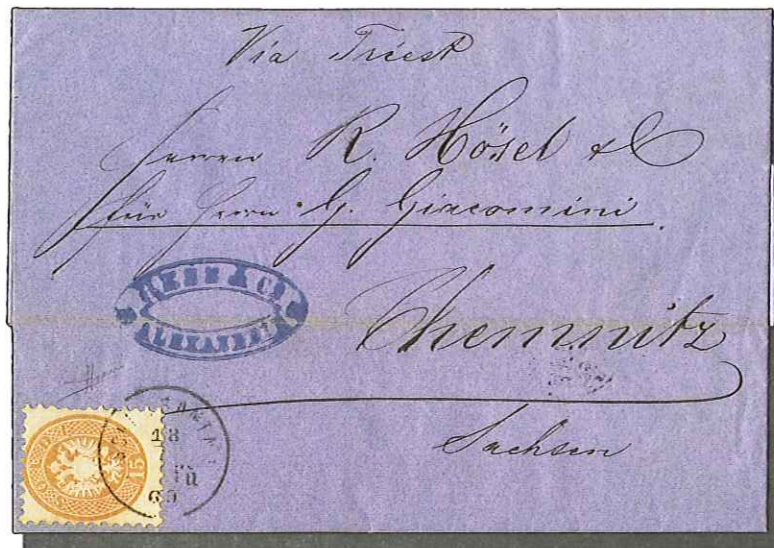 Via Triest
Herrn R. Hösel & C
für Herrn G. Giacomini.
HESS & C.
ALEXANDRIA
Chemnitz
Sachsen
15
18